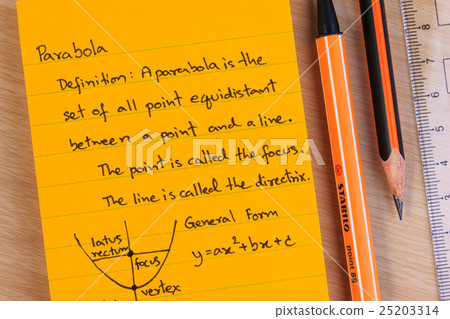 Parabola
Definition: A parabola is the
set of all point equidistant
between a point and a line.
The point is called the focus.
The line is called the directrix.
General Form
y=ax²+bx+c
latus
rectum
focus
vertex
STABILO point 88
8
7
6
5
4
123RF
25203314